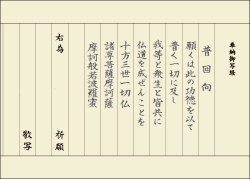 奉納御写経
普回向
願くは此の功徳を以て
普く一切に及し
我等と衆生と皆共に
仏道を成ぜんことを
十方三世一切仏
諸尊菩薩摩訶薩
摩訶般若波羅蜜
右為
祈願
敬写